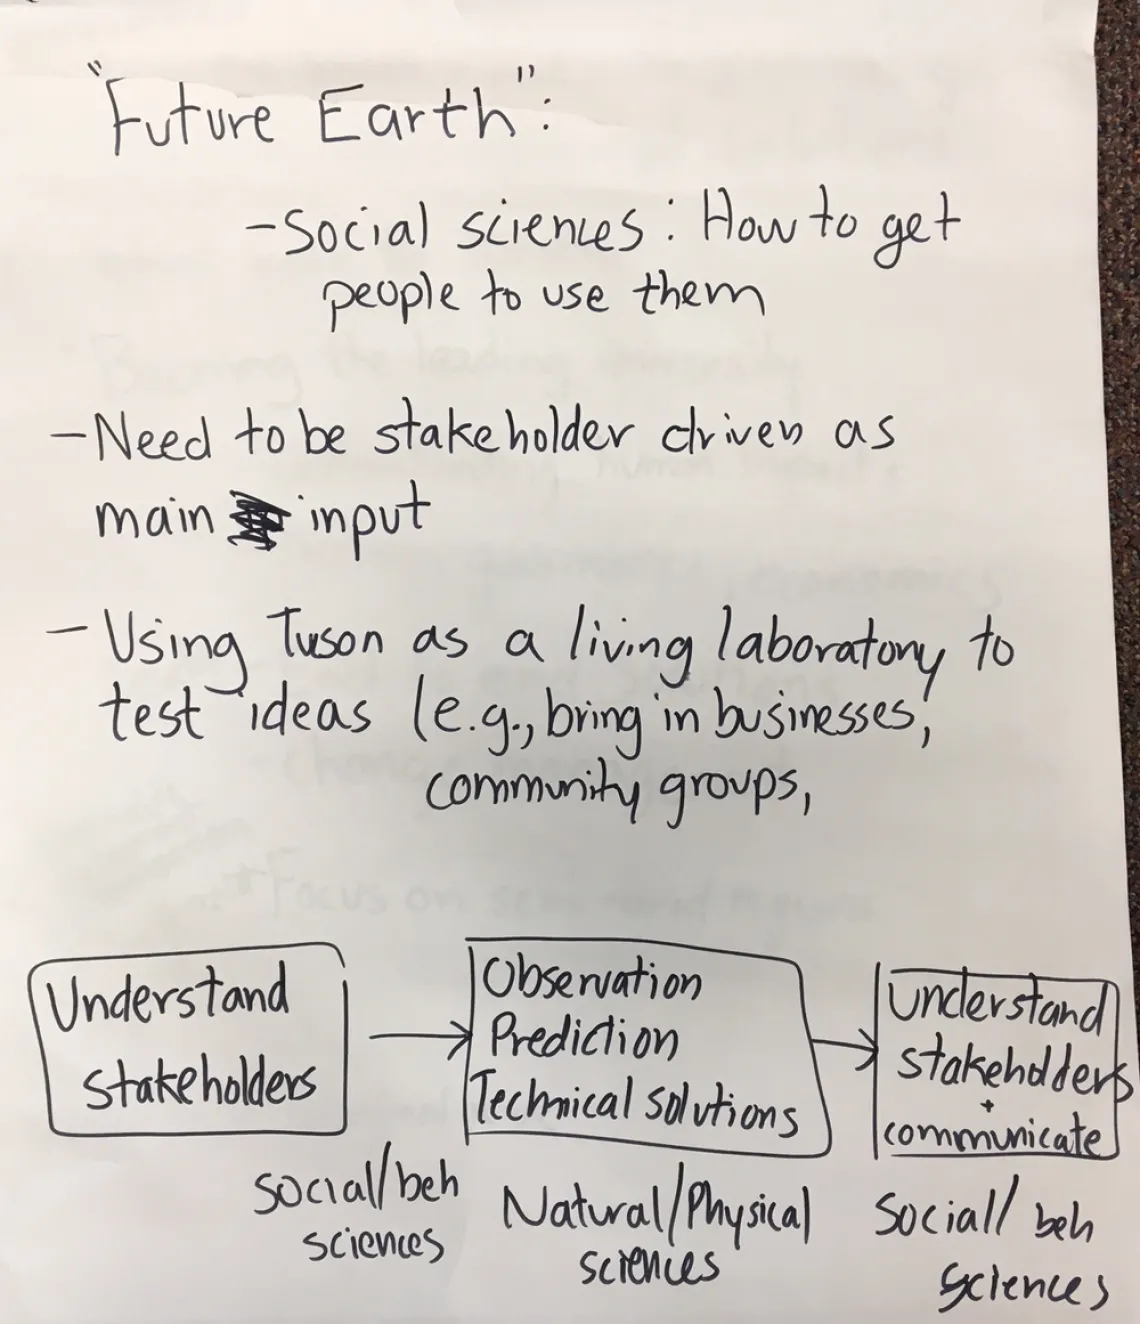 "Future Earth":
- Social sciences: How to get
people to use them
- Need to be stakeholder driven as
main input
- Using Tuson as a living laboratory to
test ideas (e.g., bring in businesses,
community groups,
Understand
stakeholders
Observation
Prediction
Technical solutions
Understand
stakeholders
+
communicate
social/beh
sciences
Natural/Physical
sciences
Social/beh
sciences